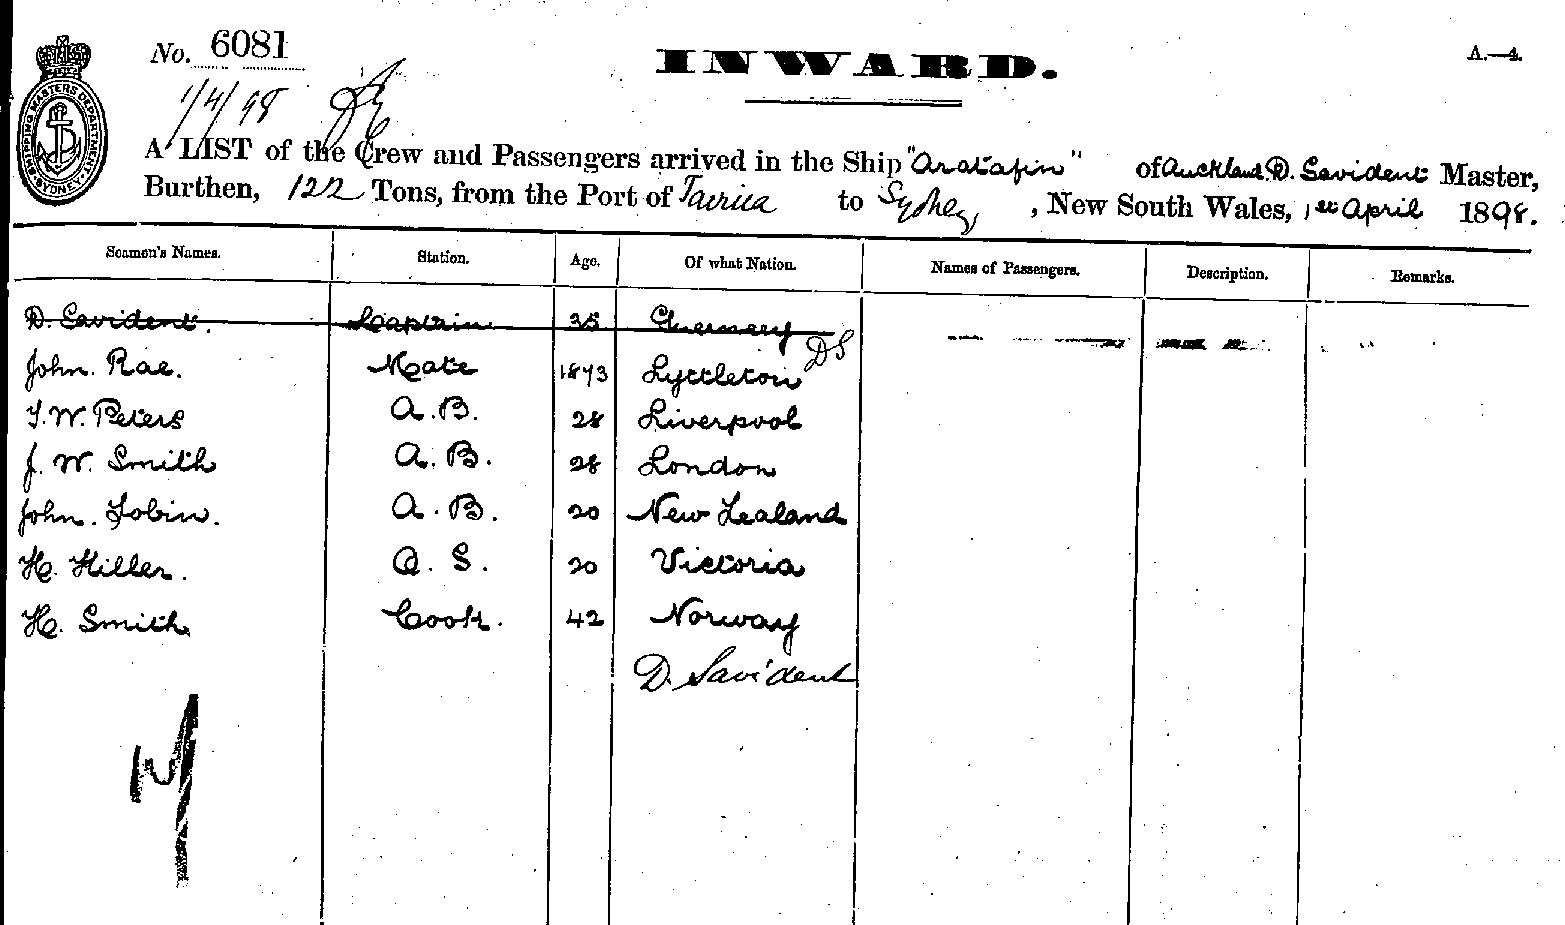 No. 6081
INWARD.
A.—4.
1/4/98
SHIPPING MASTERS DEPARTMENT SYDNEY
A LIST of the Crew and Passengers arrived in the Ship "" of Auckland D. Savident Master,
Burthen, 122 Tons, from the Port of to Sydney, New South Wales, 1st April 1898.
Seamen's Names. Station. Age. Of what Nation. Names of Passengers. Description. Remarks.
D. Savident. Captain 35 Guernsey
DS
John. Rae. Mate 1873 Lyttleton
T. W. Peters A. B. 28 Liverpool
J. W. Smith A. B. 28 London
John. Tobin. A. B. 20 New Zealand
H. Hiller. O. S. 20 Victoria
H. Smith Cook. 42 Norway
D. Savident